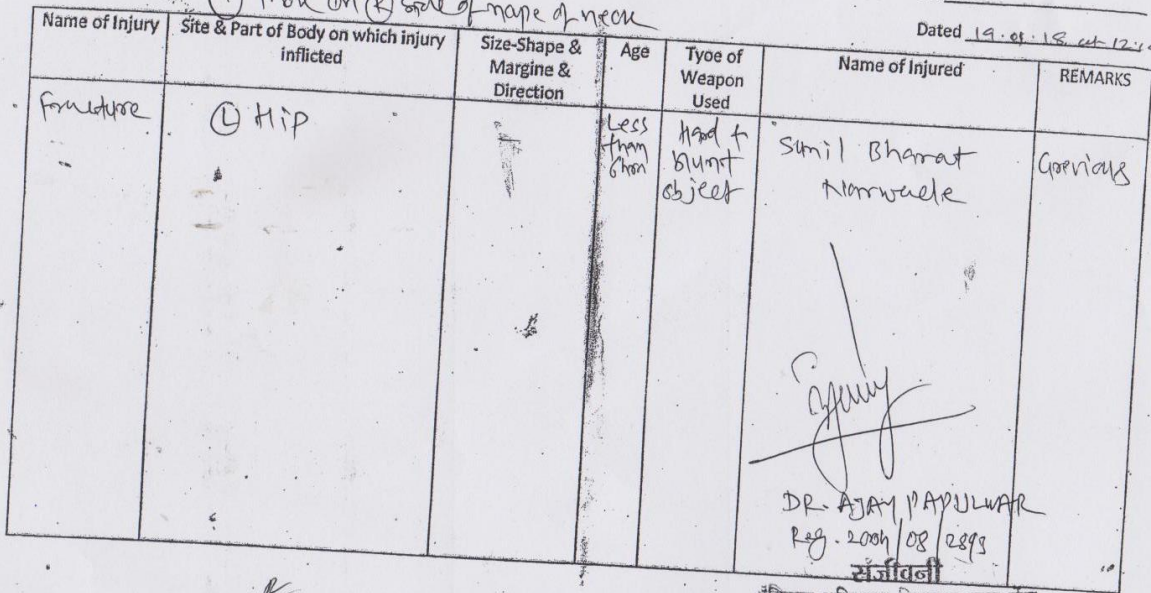 on (R) side of nape of neck
Dated 19.09.18 at 12:
Name of Injury
Site & Part of Body on which injury
inflicted
Size-Shape &
Margine &
Direction
Age
Tyoe of
Weapon
Used
Name of Injured
REMARKS
Fracture
(L) Hip
Less
than
6hrs
Hard &
blunt
object
Sunil Bharat
Narwade
Grevious
DR. AJAY PAPULWAR
Reg. 2004/08/2893
संजीवनी